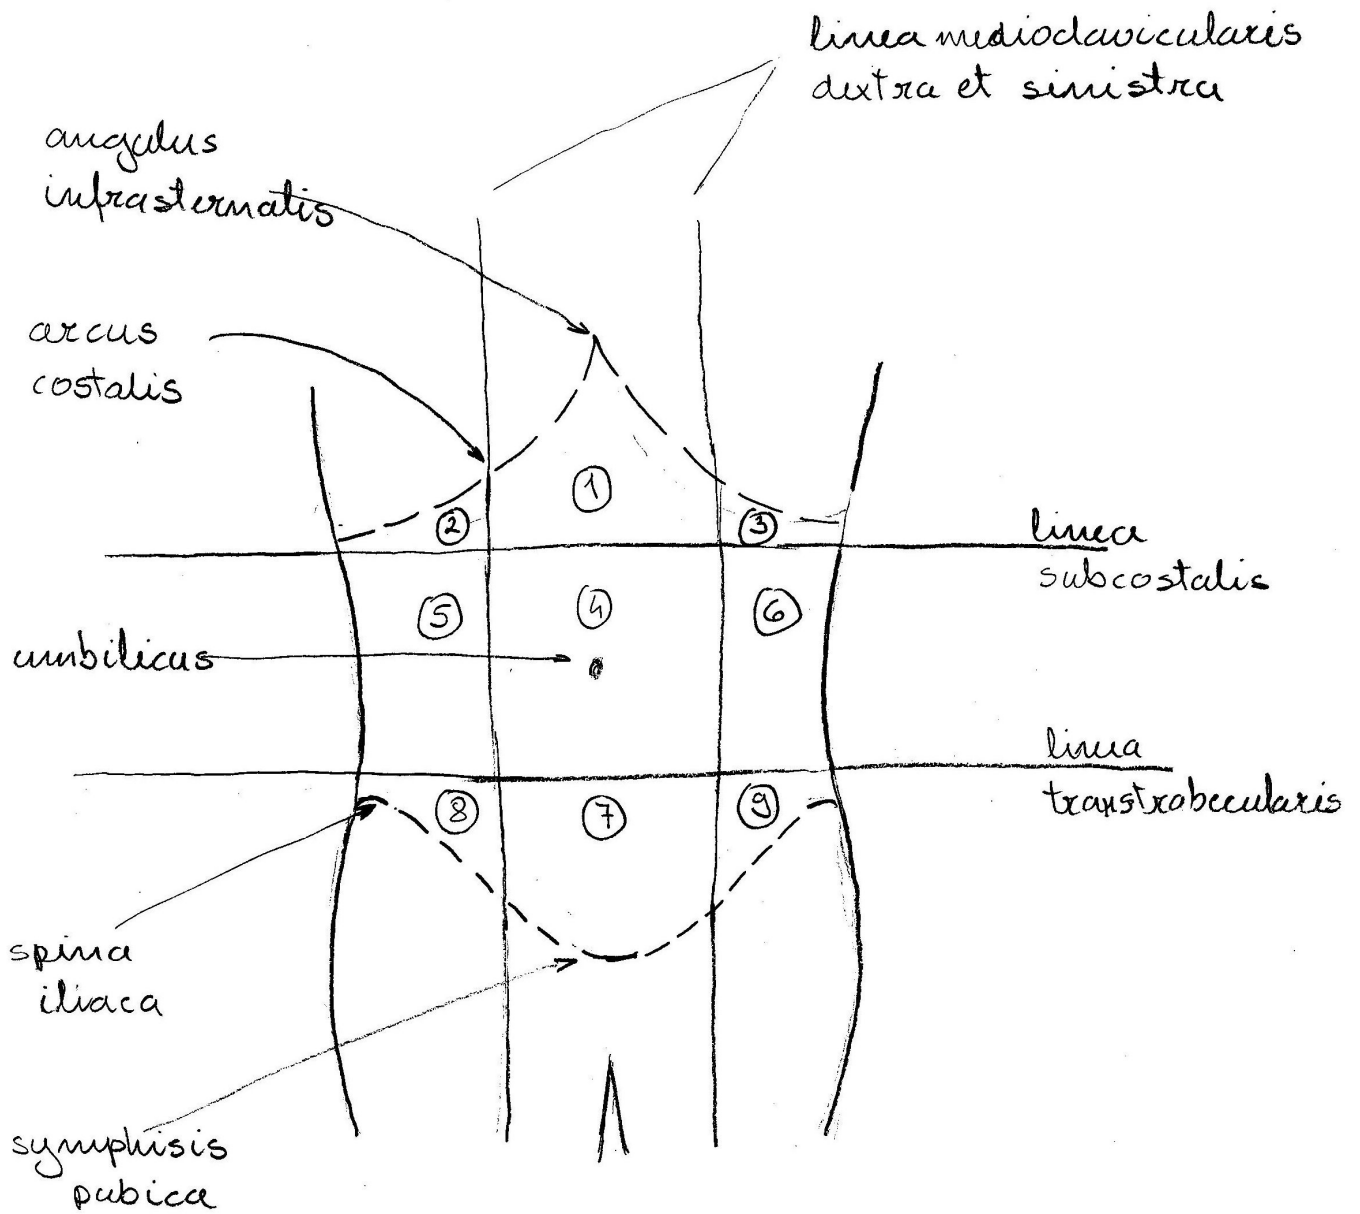 linea medioclavicularis
dextra et sinistra
angulus
infrasternalis
arcus
costalis
1
2
3
linea
subcostalis
5
4
6
umbilicus
linea
transtrabecularis
8
7
9
spina
iliaca
symphisis
pubica